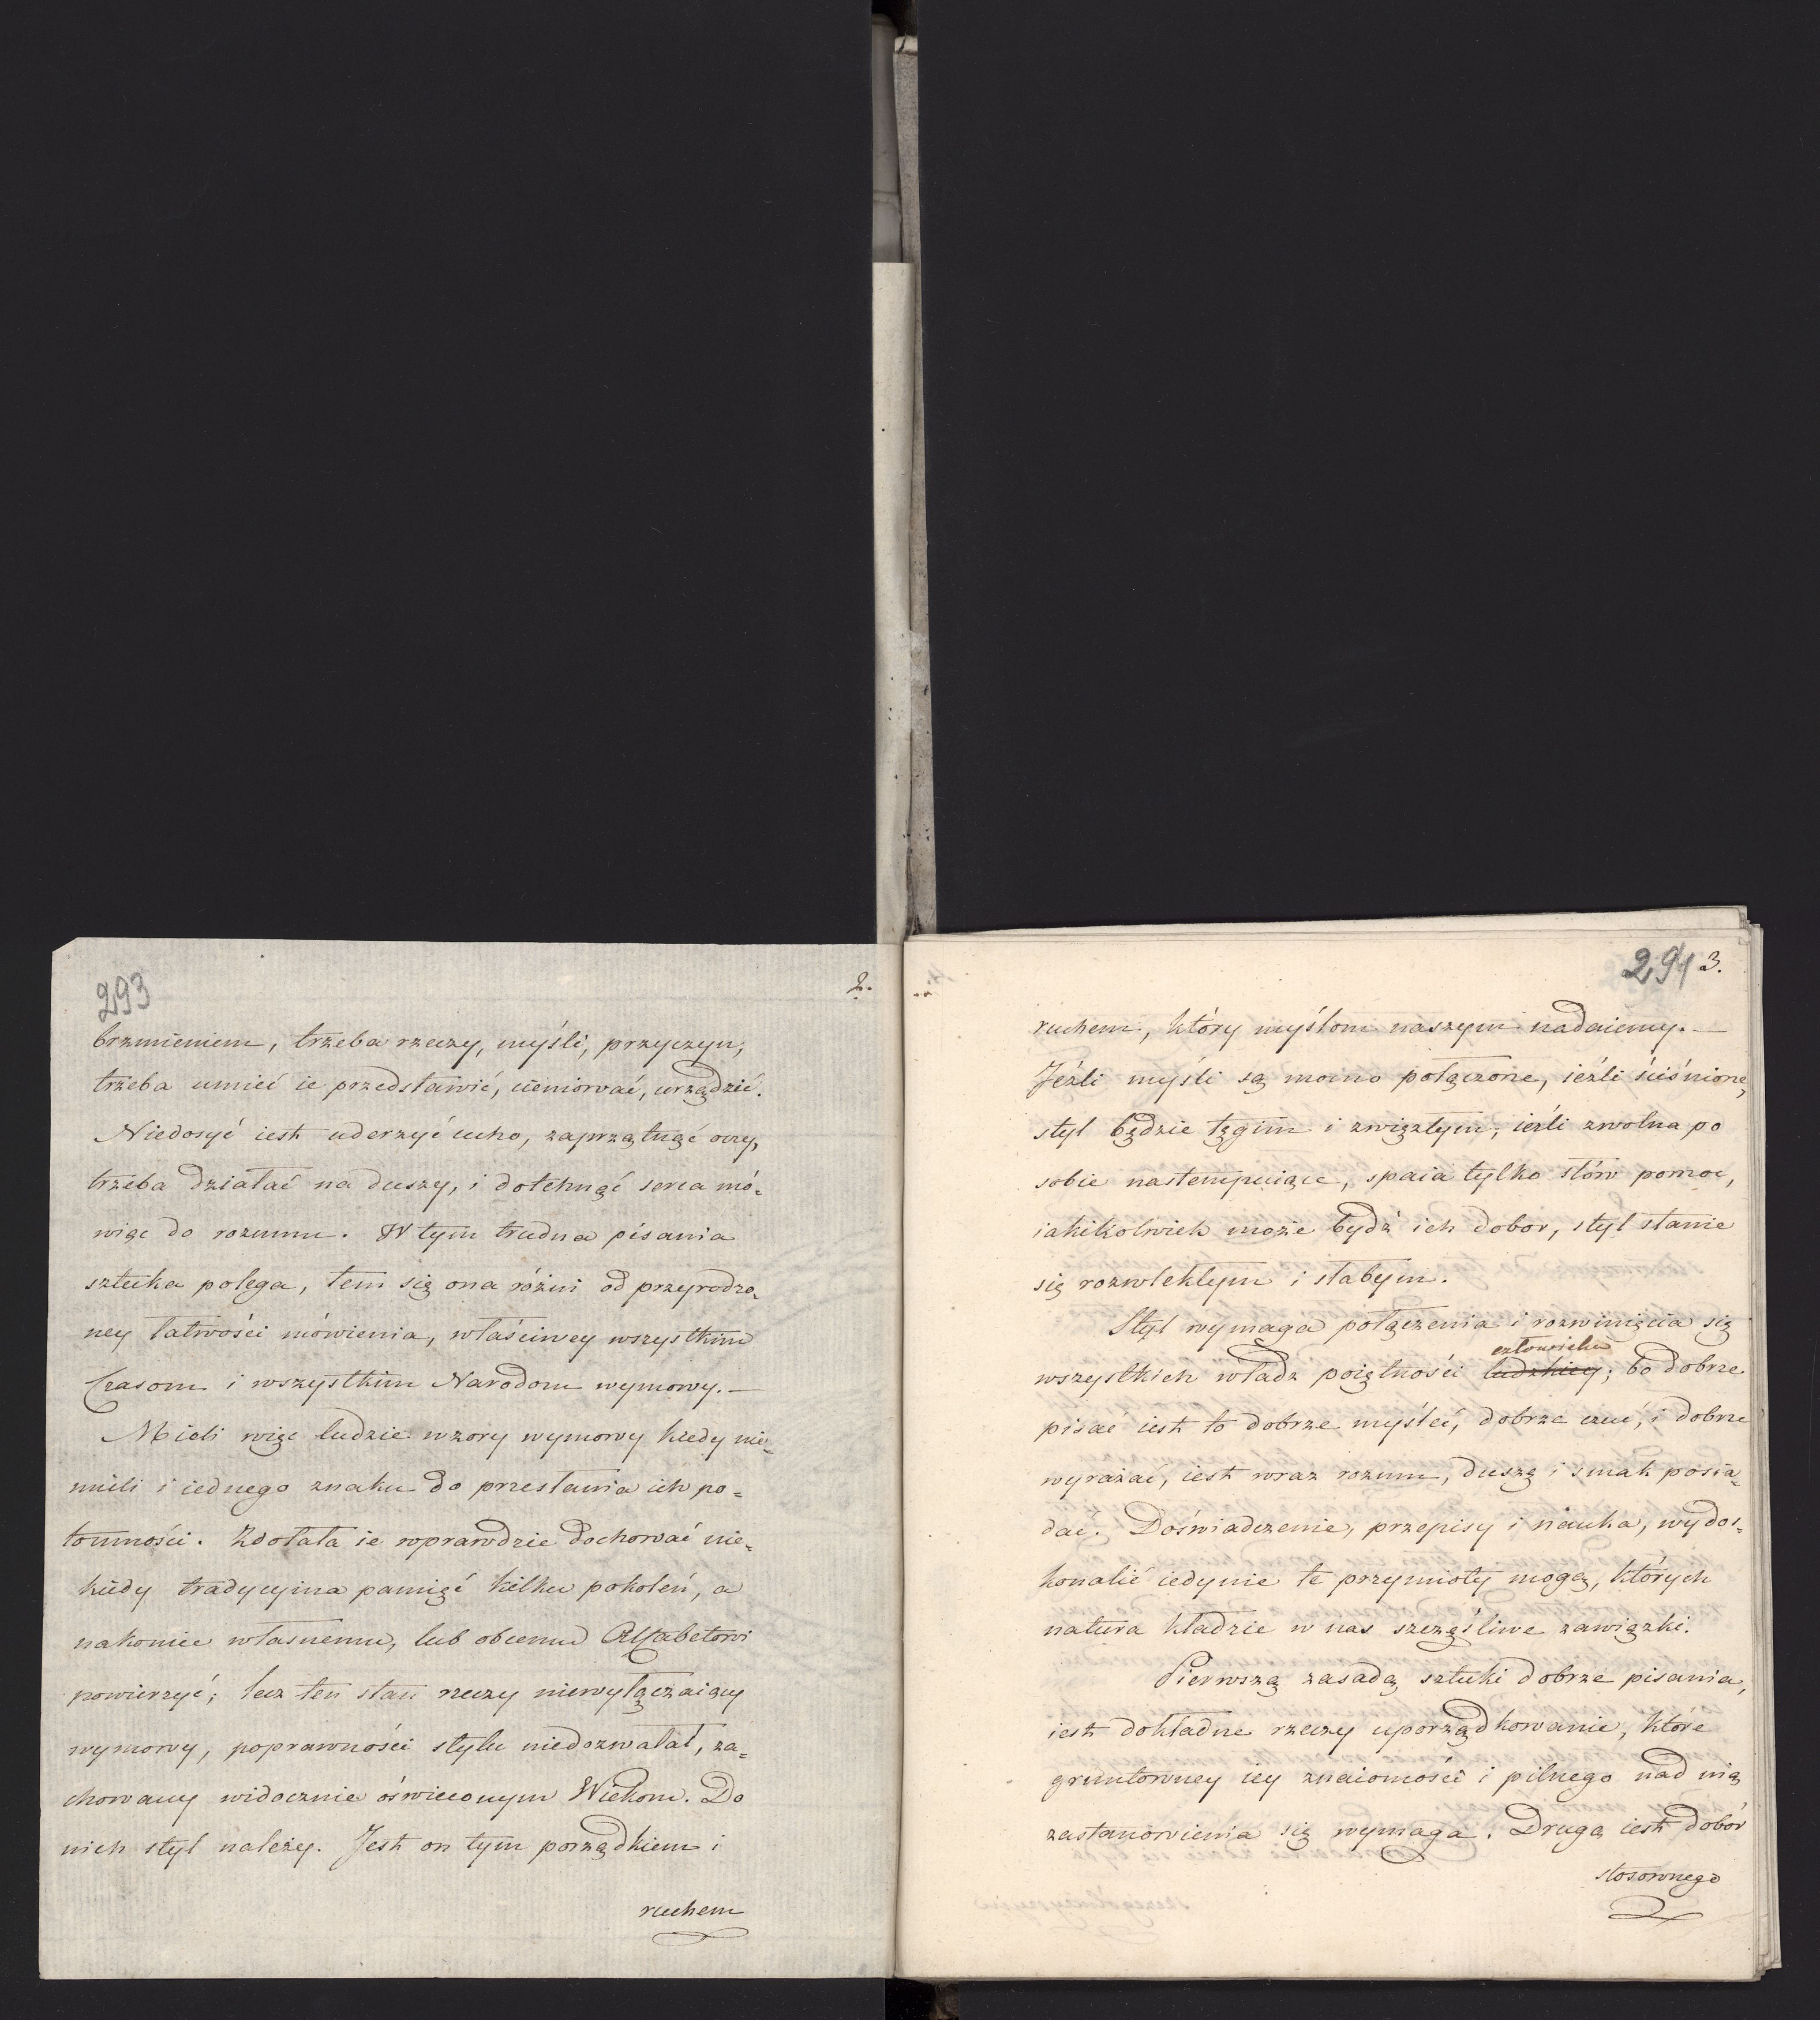 293
2.
brzmieniem, trzeba rzeczy, myśli, przyczyn,
trzeba umieć ie przedstawić, cieniować, urządzić.
Niedosyć iest uderzyć ucho, zaprzątnąć oczy,
trzeba działać na duszy, i dotchnąć serca mó=
wiąc do rozumu. W tym trudna pisania
sztuka polega, tem się ona różni od przyrodzo=
ney łatwości mówienia, właściwey wszystkim
Czasom i wszystkim Narodom wymowy. —
Mieli więc ludzie wzory wymowy kiedy nie=
mieli i iednego znaku do przesłania ich po=
tomności. Zdołała ie wprawdzie dochować nie=
kiedy tradycyjna pamięć kilku pokoleń, a
nakoniec własnemu, lub obcemu Alfabetowi
powierzyć; lecz ten stan rzeczy niewyłączaiący
wymowy, poprawności stylu niedozwalał, za=
chowany widocznie oświeconym Wiekom. Do
nich styl należy. Jest on tym porządkiem i
ruchem
294 3.
ruchem, który myślom naszym nadaiemy. —
Jeźli myśli są mocno połączone, ieźli ściśnione,
styl będzie tęgim i zwięzłym; ieźli zwolna po
sobie nastempuiące, spaia tylko słów pomoc,
iakikolwiek może bydź ich dobor, styl stanie
się rozwlekłym i słabym.
Styl wymaga połączenia i rozwinięcia się
człowieka
wszystkich władz poiętności ludzkiey; bo dobrze
pisać iest to dobrze myśleć, dobrze czuć, i dobrze
wyrażać, iest wraz rozum, duszę i smak posia=
dać. Doświadczenie, przepisy i nauka, wydos=
konalić iedynie te przymioty mogą, których
natura kładzie w nas szczęśliwe zawiązki.
Pierwszą zasadą sztuki dobrze pisania,
iest dokładne rzeczy uporządkowanie, które
gruntowney iey znaiomości i pilnego nad nią
zastanowienia się wymaga. Drugą iest dobór
stosownego